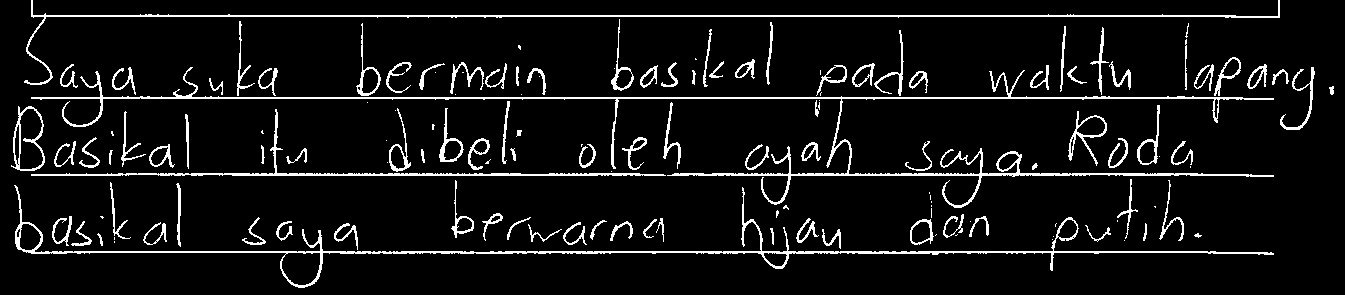 Saya suka bermain basikal pada waktu lapang.
Basikal itu dibeli oleh ayah saya. Roda
basikal saya berwarna hijau dan putih.